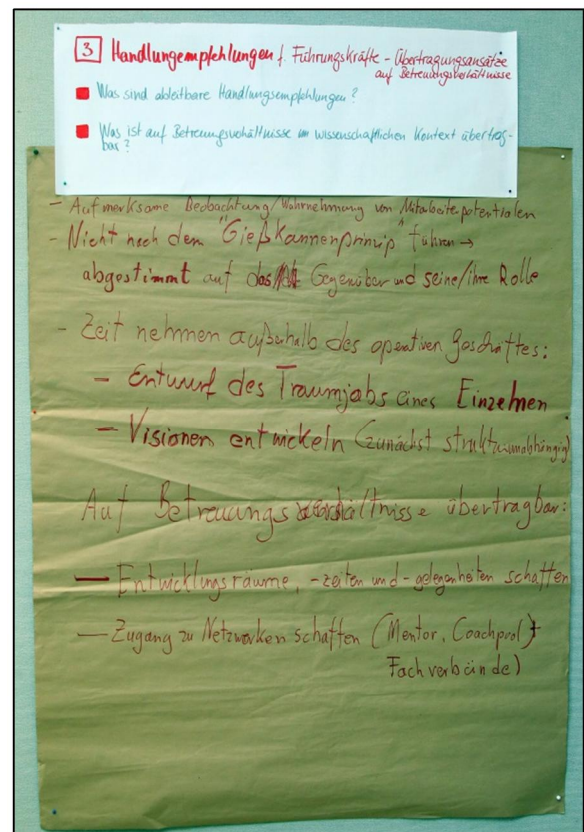 3 Handlungempfehlungen f. Führungskräfte - Übertragungsansätze
auf Betreuungsverhältnisse
Was sind ableitbare Handlungsempfehlungen?
Was ist auf Betreuungsverhältnisse im wissenschaftlichen Kontext übertrag-
bar?
- Aufmerksame Beobachtung/Wahrnehmung von Mitarbeiterpotentialen
- Nicht nach dem "Gießkannenprinzip" führen →
abgestimmt auf das Gegenüber und seine/ihre Rolle
- Zeit nehmen außerhalb des operativen Geschäftes:
- Entwurf des Traumjobs eines Einzelnen
- Visionen entwickeln (zunächst strukturunabhängig)
Auf Betreuungsverhältnisse übertragbar:
- Entwicklungsräume, -zeiten und -gelegenheiten schaffen
- Zugang zu Netzwerken schaffen (Mentor, Coachpool +
Fachverbände)